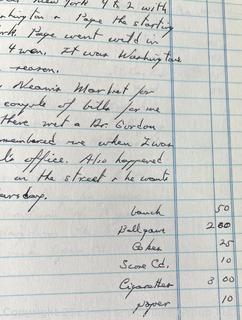 New York 4 & 2 with
& Pape the starting
Pape went wild in
4 won. It was Washingtons
season.
Market for
couple of bills for me
there met a Dr. Gordon
remembered me when I was
office. Also happened
on the street & he wants
Lunch 50
Ballgame 2 00
Cokes 25
Score Cd. 10
Cigarettes 3 00
paper 10